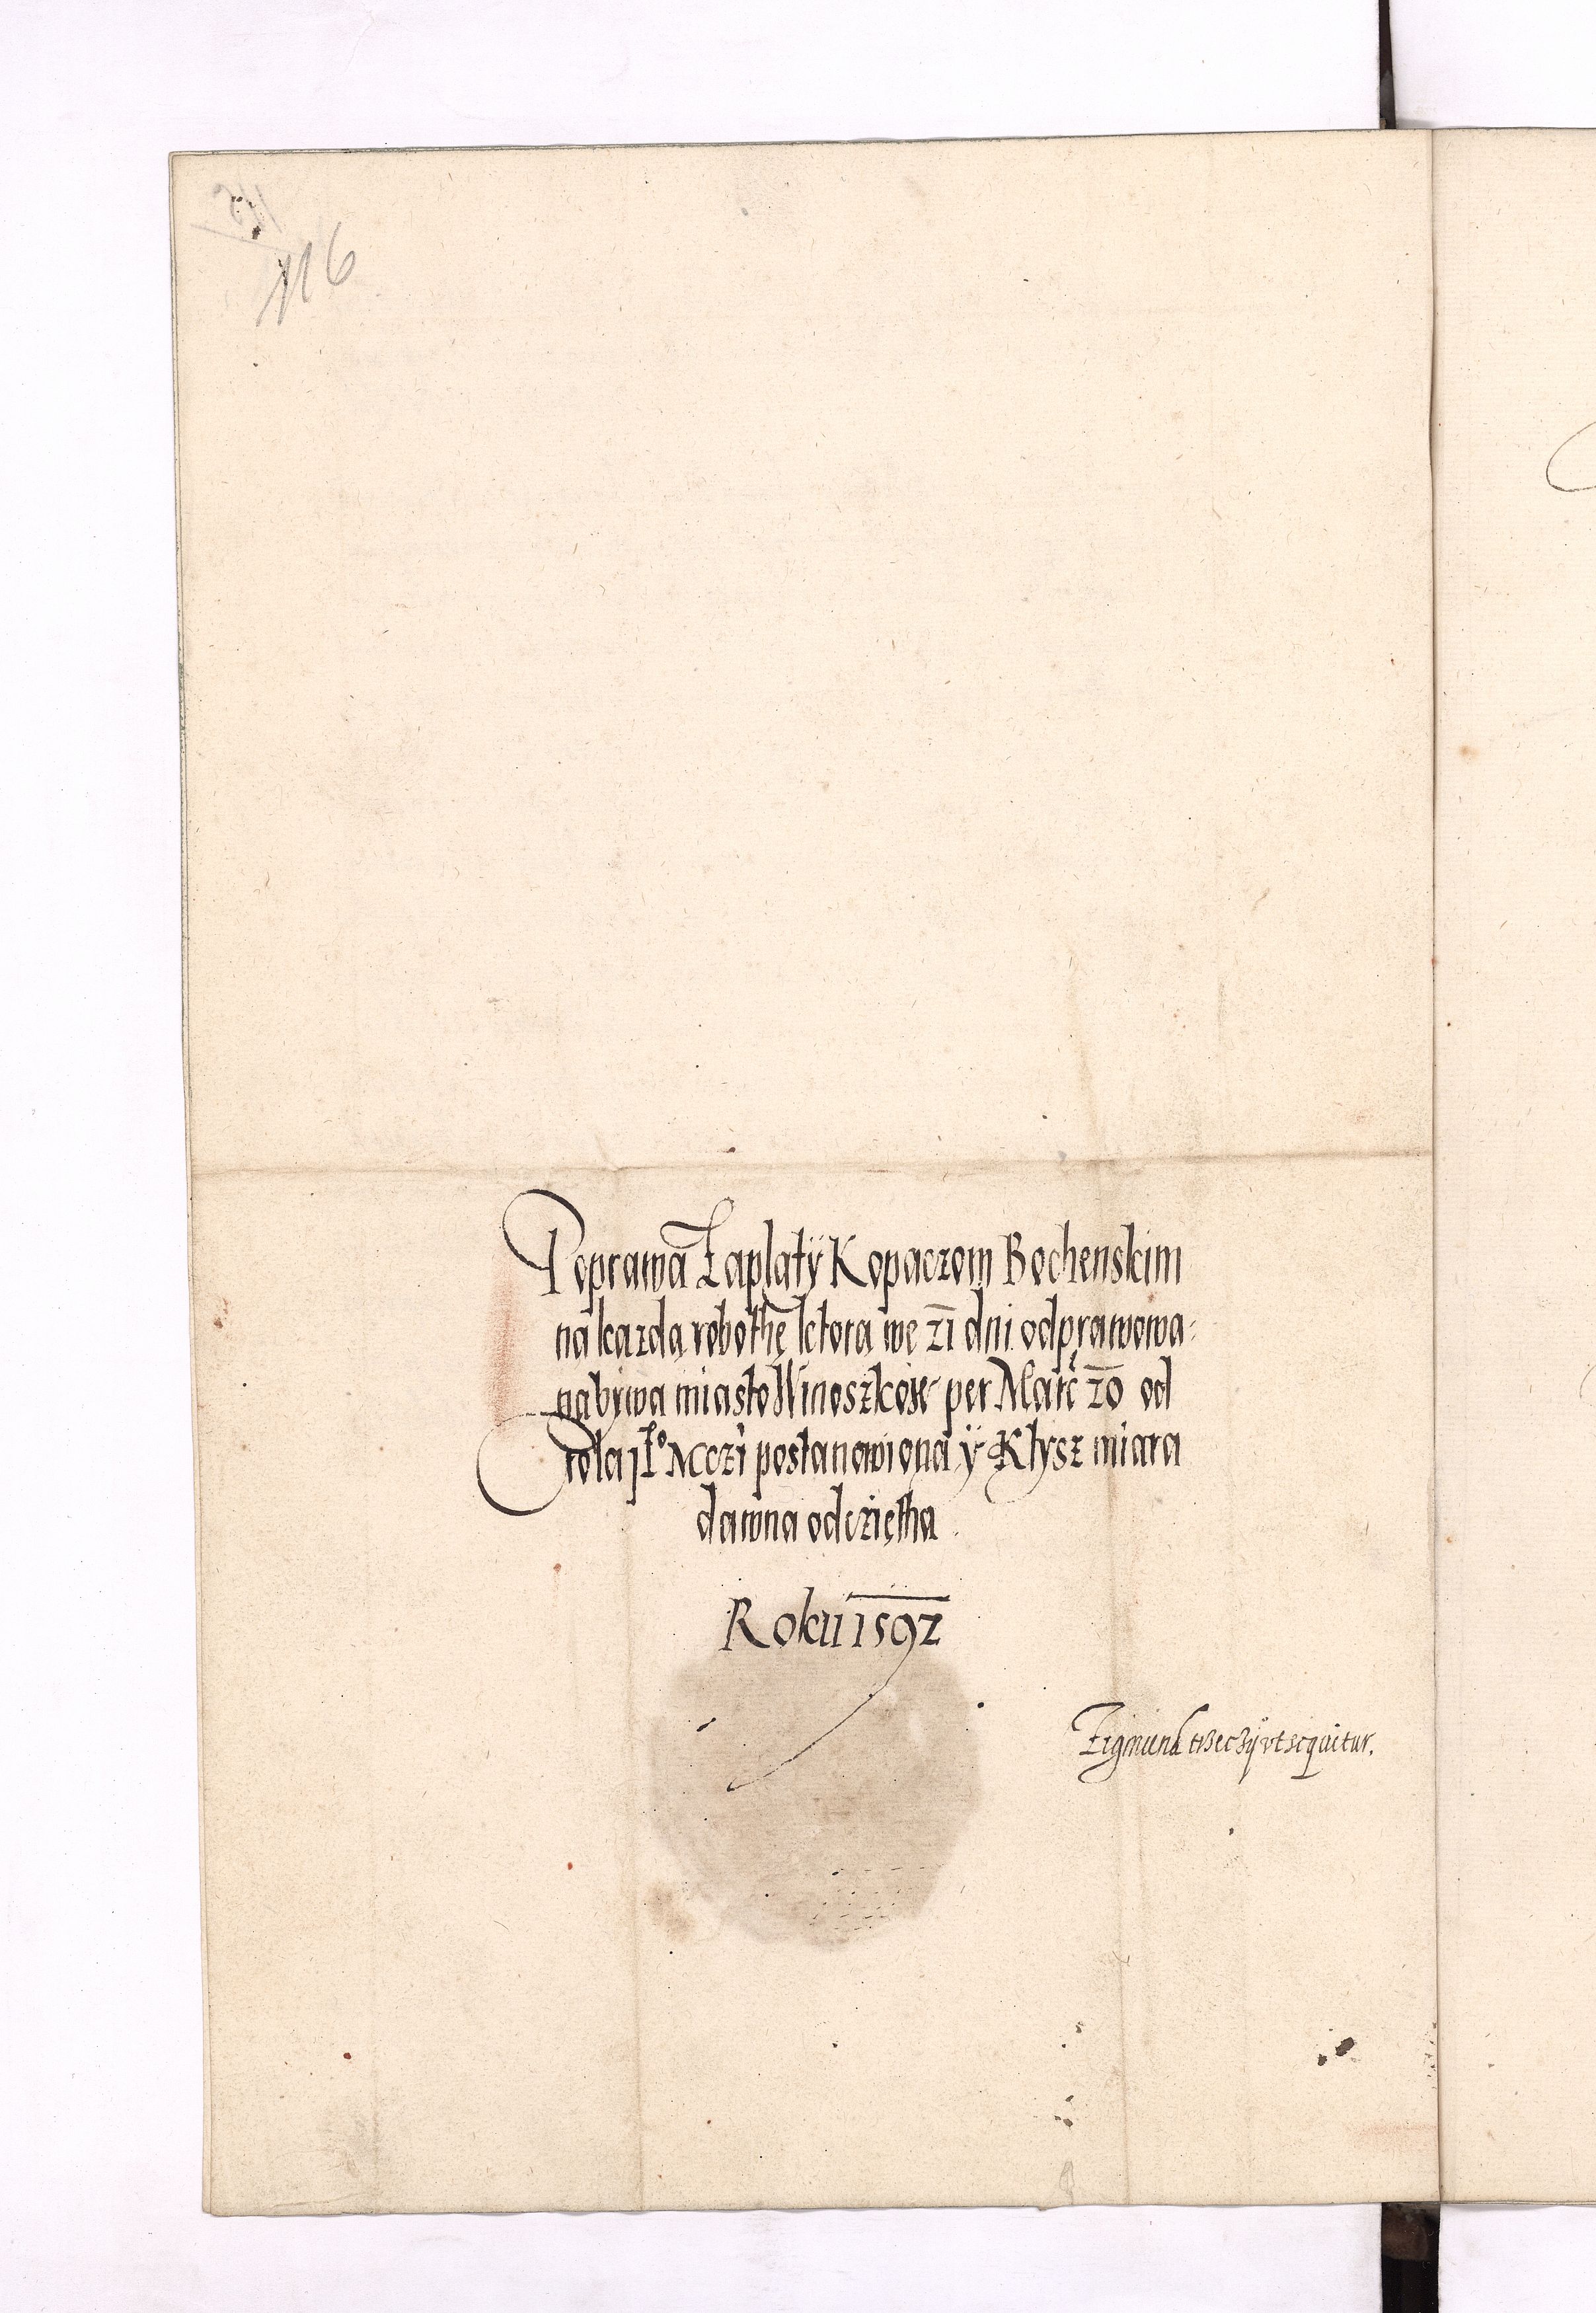 116
Poprawa Zaplaty Kopaczom Bochenskim
na kazdą robothę ktora we 21 dni odprawowa-
na bywa miasto Winoszkow per Marc 20 od
Crola Jeo Mczi postanowiona ÿ Kłysz miara
dawna odcziętha.
Roku 1592
Zigmund ut sequitur.